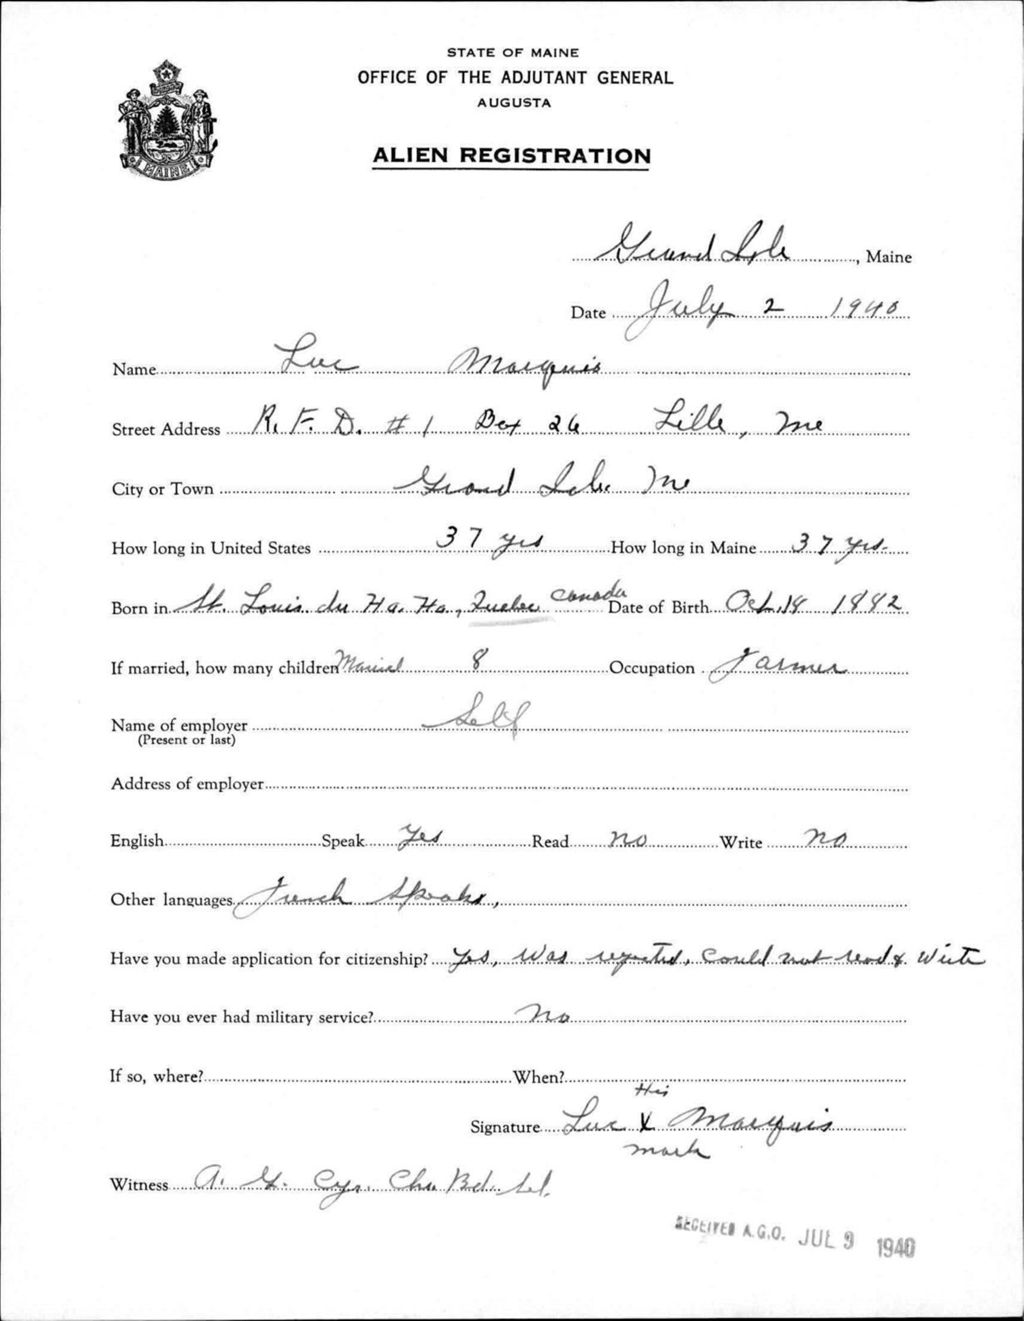 STATE OF MAINE
OFFICE OF THE ADJUTANT GENERAL
AUGUSTA
ALIEN REGISTRATION
MAINE
Grand Isle, Maine
Date July 2 1940
Name Luc Marquis
Street Address R. F. D. # 1 Box 26 Lille, Me
City or Town Grand Isle Me
How long in United States 37 yrs How long in Maine 37 yrs.
Born in St. Louis du Ha. Ha., Quebec Canada Date of Birth Oct. 18 1882
If married, how many children Married 8 Occupation Farmer
Name of employer Self
(Present or last)
Address of employer
English Speak Yes Read no Write no
Other languages French Speaks,
Have you made application for citizenship? Yes, Was rejected, Could not read & Write
Have you ever had military service? No
If so, where? When?
His
Signature Luc X Marquis
mark
Witness A. G. Cyr. Bd. Sel.
RECEIVED A.G.O. JUL 9 1940